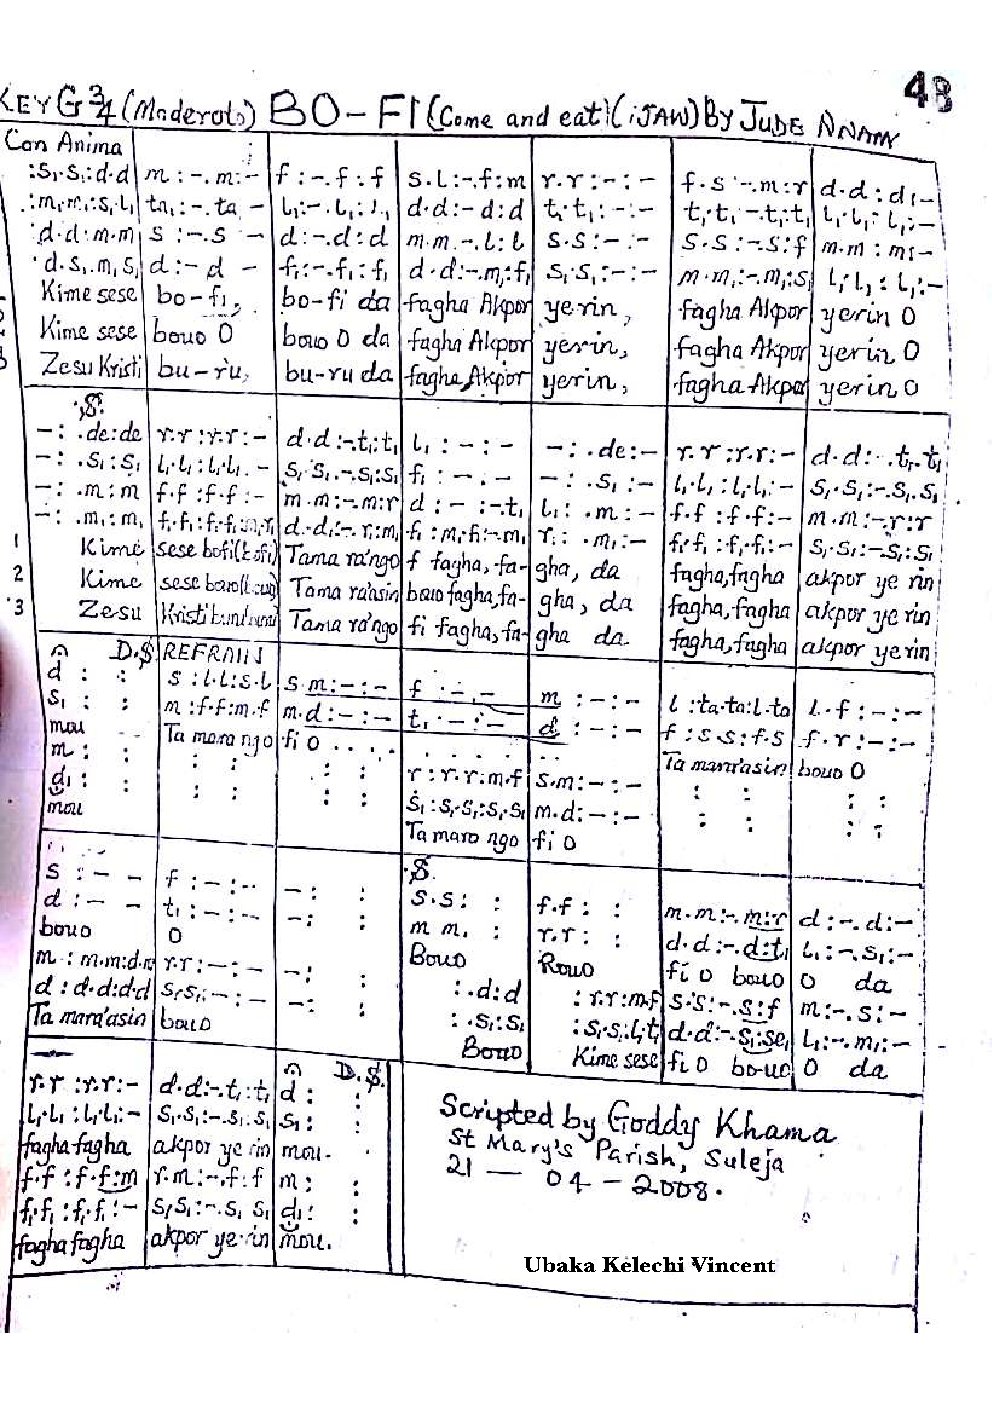 48
KEY G 3/4 (Moderato) BO-FI (Come and eat) (IJAW) By JUDE NNAM
Con Anima
:s₁.s₁:d.d | m :-.m:- | f :-.f:f | s.l:-.f:m | r.r:-:- | f.s:-.m:r | d.d:d₁-
:m₁.m₁:s₁.l₁ | ta₁:-.ta₁- | l₁:-.l₁:l₁ | d.d:-d:d | t₁.t₁:-:- | t₁.t₁:-.t₁:t₁ | l₁.l₁:l₁:-
:d.d:m.m | s:-.s - | d:-.d:d | m.m.-.l:l | s.s:-:- | s.s:-.s:f | m.m:m₁-
:d.s₁.m₁.s₁ | d:-d - | f₁:-.f₁:f₁ | d.d:-.m₁:f₁ | s₁.s₁:-:- | m.m₁:-.m₁:s₁ | l₁.l₁:l₁:-
Kime sese | bo-fi, | bo-fi da | fagha Akpor | yerin, | fagha Akpor | yerin O
Kime sese | bouo O | bouo O da | fagha Akpor | yerin, | fagha Akpor | yerin O
Zesu Kristi | bu-ru, | bu-ru da | fagha Akpor | yerin, | fagha Akpor | yerin O
.S.
-: .de:de | r.r:r.r:- | d.d:-.t₁:t₁ | l₁:-:- | -:.de:- | r.r:r.r:- | d.d:-.t₁.t₁
-: .s₁:s₁ | l₁.l₁:l₁.l₁.- | s₁.s₁.-.s₁:s₁ | f₁:-.- | -:.s₁:- | l₁.l₁:l₁.l₁:- | s₁.s₁:-.s₁.s₁
-: .m:m | f.f:f.f:- | m.m:-.m:r | d:-:-.t₁ | l₁:.m:- | f.f:f.f:- | m.m:-r:r
-: .m₁:m₁ | f₁.f₁:f₁.f₁:m₁.r₁ | d.d₁:-.r₁:m₁ | f₁:m₁.f₁:-.m₁ | r₁:.m₁:- | f₁.f₁:f₁.f₁:- | s₁.s₁:-s₁:s₁
1 Kime | sese bofi (bofi) | Tama ra'ngo | f fagha, fa- | gha, da | fagha, fagha | akpor ye rin
2 Kime | sese bouo | Tama ra'asin | bouo fagha, fa- | gha, da | fagha, fagha | akpor ye rin
3 Zesu | Kristi | Tama ra'ngo | fi fagha, fa- | gha da | fagha, fagha | akpor ye rin
D.S | REFRAIN
d : : | s:l.l:s.l | s.m:-:- | f:-.- | m:-:- | l:ta.ta:l.ta | l.f:-:-
s₁: : | m:f.f:m.f | m.d:-:- | t₁:-:- | d:-:- | f:s.s:f.s | f.r:-:-
mou | Ta mara ngo | fi O | Ta mara'asin | bouo O
m : : | : : | : : | r:r.r:m.f | s.m:-:- | : : | : :
d₁: : | : : | : : | s₁:s₁.s₁:s₁.s₁ | m.d:-:- | : : | : :
mou | Ta mara ngo | fi O
.S.
s:-- | f:-:-- | -: : | s.s: : | f.f: : | m.m:-.m:r | d:-.d:-
d:-- | t₁:-:- | -: : | m m. : | r.r: : | d.d:-.d:t₁ | l₁:-.s₁:-
bouo | O | Bouo | Bouo | fi O bouo | O da
m:m.m:d.r | r.r:-:- | -: : | :.d:d | :r.r:m.f | s.s:-.s:f | m:-.s:-
d:d.d:d.d | s₁.s₁:-:- | -: : | :.s₁:s₁ | :s₁.s₁:l₁.t₁ | d.d:-.s₁:se₁ | l₁:-.m₁:-
Ta mara'asin | bouo | Bouo | Kime sese | fi O bouo | O da
D.S.
r.r:r.r:- | d.d:-.t₁:t₁ | d: :
l₁.l₁:l₁.l₁:- | s₁.s₁:-.s₁.s₁ | s₁: :
fagha fagha | akpor ye rin | mou.
f.f:f.f:m | r.m:-.f:f | m: :
f₁.f₁:f₁.f₁:- | s₁.s₁:-.s₁ s₁ | d₁: :
fagha fagha | akpor ye rin | mou.
Scripted by Goddy Khama
St Mary's Parish, Suleja
21 — 04 - 2008.
Ubaka Kelechi Vincent